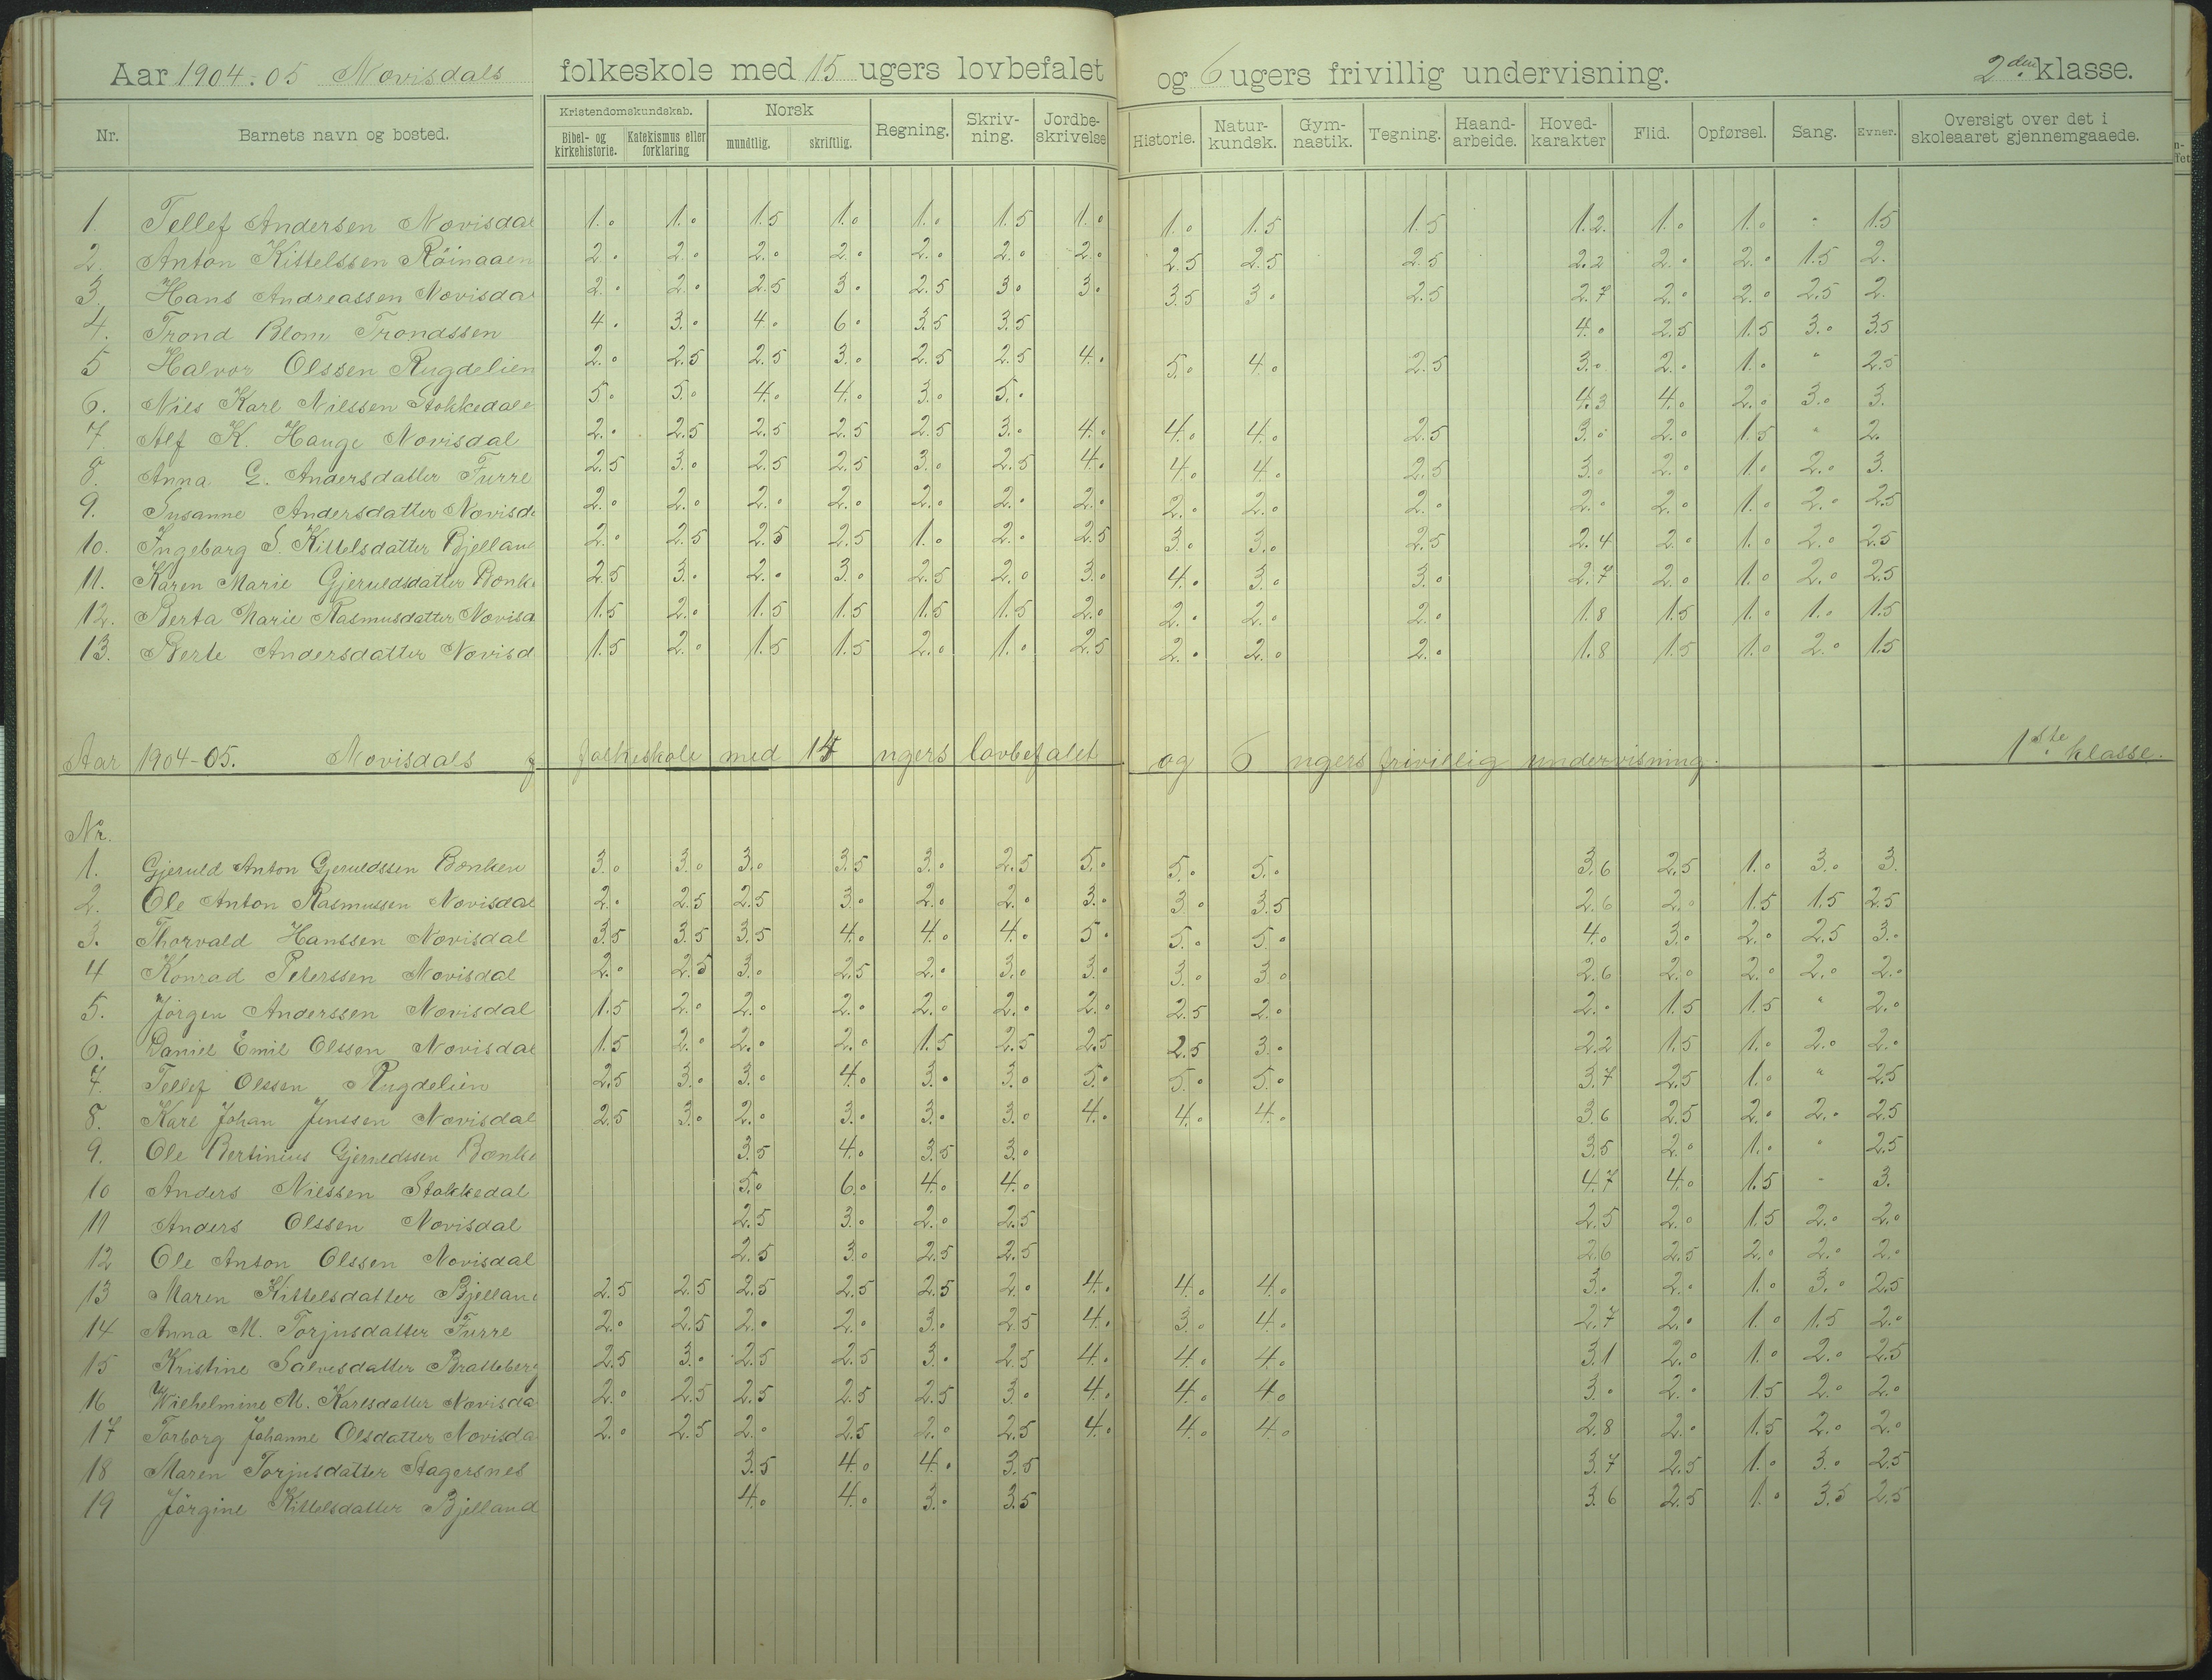 Aar 1904-05 Novisdals folkeskole med 15 ugers lovbefalet og 6 ugers frivillig undervisning. 2den klasse.
Nr. Barnets navn og bosted. Kristendomskundskab. Bibel- og kirkehistorie. Katekismus eller forklaring Norsk mundtlig. skriftlig. Regning. Skriv-ning. Jordbe-skrivelse Historie. Natur-kundsk. Gym-nastik. Tegning. Haand-arbeide. Hoved-karakter Flid. Opførsel. Sang. Evner. Oversigt over det i skoleaaret gjennemgaaede.
1. Tellef Andersen Novisdal 1.0 1.0 1.5 1.0 1.0 1.5 1.0 1.0 1.5 1.5 1.2. 1.0 1.0 " 1.5
2. Anton Kittelssen Röinaaen 2.0 2.0 2.0 2.0 2.0 2.0 2.0 2.5 2.5 2.5 2.2 2.0 2.0 1.5 2.
3. Hans Andreassen Novisdal 2.0 2.0 2.5 3.0 2.5 3.0 3.0 3.5 3.0 2.5 2.7 2.0 2.0 2.5 2.
4. Trond Blom Trondssen 4.0 3.0 4.0 6.0 3.5 3.5 4.0 2.5 1.5 3.0 3.5
5 Halvor Olssen Rugdelien 2.0 2.5 2.5 3.0 2.5 2.5 4.0 5.0 4.0 2.5 3.0 2.0 1.0 " 2.5
6. Nils Karl Nilssen Stokkedalen 5.0 5.0 4.0 4.0 3.0 5.0 4.3 4.0 2.0 3.0 3.
7. Alf K. Hauge Novisdal 2.0 2.5 2.5 2.5 2.5 3.0 4.0 4.0 4.0 2.5 3.0 2.0 1.5 " 2.
8. Anna G. Andersdatter Furre 2.5 3.0 2.5 2.5 3.0 2.5 4.0 4.0 4.0 2.5 3.0 2.0 1.0 2.0 3.
9. Susanne Andersdatter Novisd 2.0 2.0 2.0 2.0 2.0 2.0 2.0 2.0 2.0 2.0 2.0 2.0 1.0 2.0 2.5
10. Ingeborg S. Kittelsdatter Bjelland 2.0 2.5 2.5 2.5 1.0 2.0 2.5 3.0 3.0 2.5 2.4 2.0 1.0 2.0 2.5
11. Karen Marie Gjeruldsdatter Bonke 2.5 3.0 2.0 3.0 2.5 2.0 3.0 4.0 3.0 3.0 2.7 2.0 1.0 2.0 2.5
12. Berta Marie Rasmusdatter Novisd 1.5 2.0 1.5 1.5 1.5 1.5 2.0 2.0 2.0 2.0 1.8 1.5 1.0 1.0 1.5
13. Berte Andersdatter Novisd 1.5 2.0 1.5 1.5 2.0 1.0 2.5 2.0 2.0 2.0 1.8 1.5 1.0 2.0 1.5
Aar 1904-05. Novisdals folkeskole med 15 ugers lovbefalet og 6 ugers frivillig undervisning. 1ste klasse.
Nr.
1. Gjeruld Anton Gjeruldssen Bonken 3.0 3.0 3.0 3.5 3.0 2.5 5.0 5.0 5.0 3.6 2.5 1.0 3.0 3.
2. Ole Anton Rasmussen Novisdal 2.0 2.5 2.5 3.0 2.0 2.0 3.0 3.0 3.5 2.6 2.0 1.5 1.5 2.5
3. Thorvald Hanssen Novisdal 3.5 3.5 3.5 4.0 4.0 4.0 5.0 5.0 5.0 4.0 3.0 2.0 2.5 3.0
4 Konrad Peterssen Novisdal 2.0 2.5 3.0 2.5 2.0 3.0 3.0 3.0 3.0 2.6 2.0 2.0 2.0 2.0
5. Jörgen Anderssen Novisdal 1.5 2.0 2.0 2.0 2.0 2.0 2.0 2.5 2.0 2.0 1.5 1.5 " 2.0
6. Daniel Emil Olssen Novisdal 1.5 2.0 2.0 2.0 1.5 2.5 2.5 2.5 3.0 2.2 1.5 1.0 2.0 2.0
7. Tellef Olssen Rugdelien 2.5 3.0 3.0 4.0 3.0 3.0 5.0 5.0 5.0 3.7 2.5 1.0 " 2.5
8. Karl Johan Jenssen Novisdal 2.5 3.0 2.0 3.0 3.0 3.0 4.0 4.0 4.0 3.6 2.5 2.0 2.0 2.5
9. Ole Bertinius Gjeruldssen Bonke 3.5 4.0 3.5 3.0 3.5 2.0 1.0 " 2.5
10 Anders Nilssen Stokkedal 5.0 6.0 4.0 4.0 4.7 4.0 1.5 - 3.
11 Anders Olssen Novisdal 2.5 3.0 2.0 2.5 2.5 2.0 1.5 2.0 2.0
12 Ole Anton Olssen Novisdal 2.5 3.0 2.5 2.5 2.6 2.5 2.0 2.0 2.0
13 Maren Kittelsdatter Bjelland 2.5 2.5 2.5 2.5 2.5 2.0 4.0 4.0 4.0 3.0 2.0 1.0 3.0 2.5
14 Anna M. Torjusdatter Furre 2.0 2.5 2.0 2.0 3.0 2.5 4.0 3.0 4.0 2.7 2.0 1.0 1.5 2.0
15 Kristine Salvesdatter Bratteberg 2.5 3.0 2.5 2.5 3.0 2.5 4.0 4.0 4.0 3.1 2.0 1.0 2.0 2.5
16 Wilhelmine M. Karlsdatter Novisda 2.0 2.5 2.5 2.5 2.5 3.0 4.0 4.0 4.0 3.0 2.0 1.5 2.0 2.0
17 Torborg Johanne Olsdatter Novisda 2.0 2.5 2.0 2.5 2.0 2.5 4.0 4.0 4.0 2.8 2.0 1.5 2.0 2.0
18 Maren Torjusdatter Stagersnes 3.5 4.0 4.0 3.5 3.7 2.5 1.0 3.0 2.5
19 Jörgine Kittelsdatter Bjelland 4.0 4.0 3.0 3.5 3.6 2.5 1.0 3.5 2.5